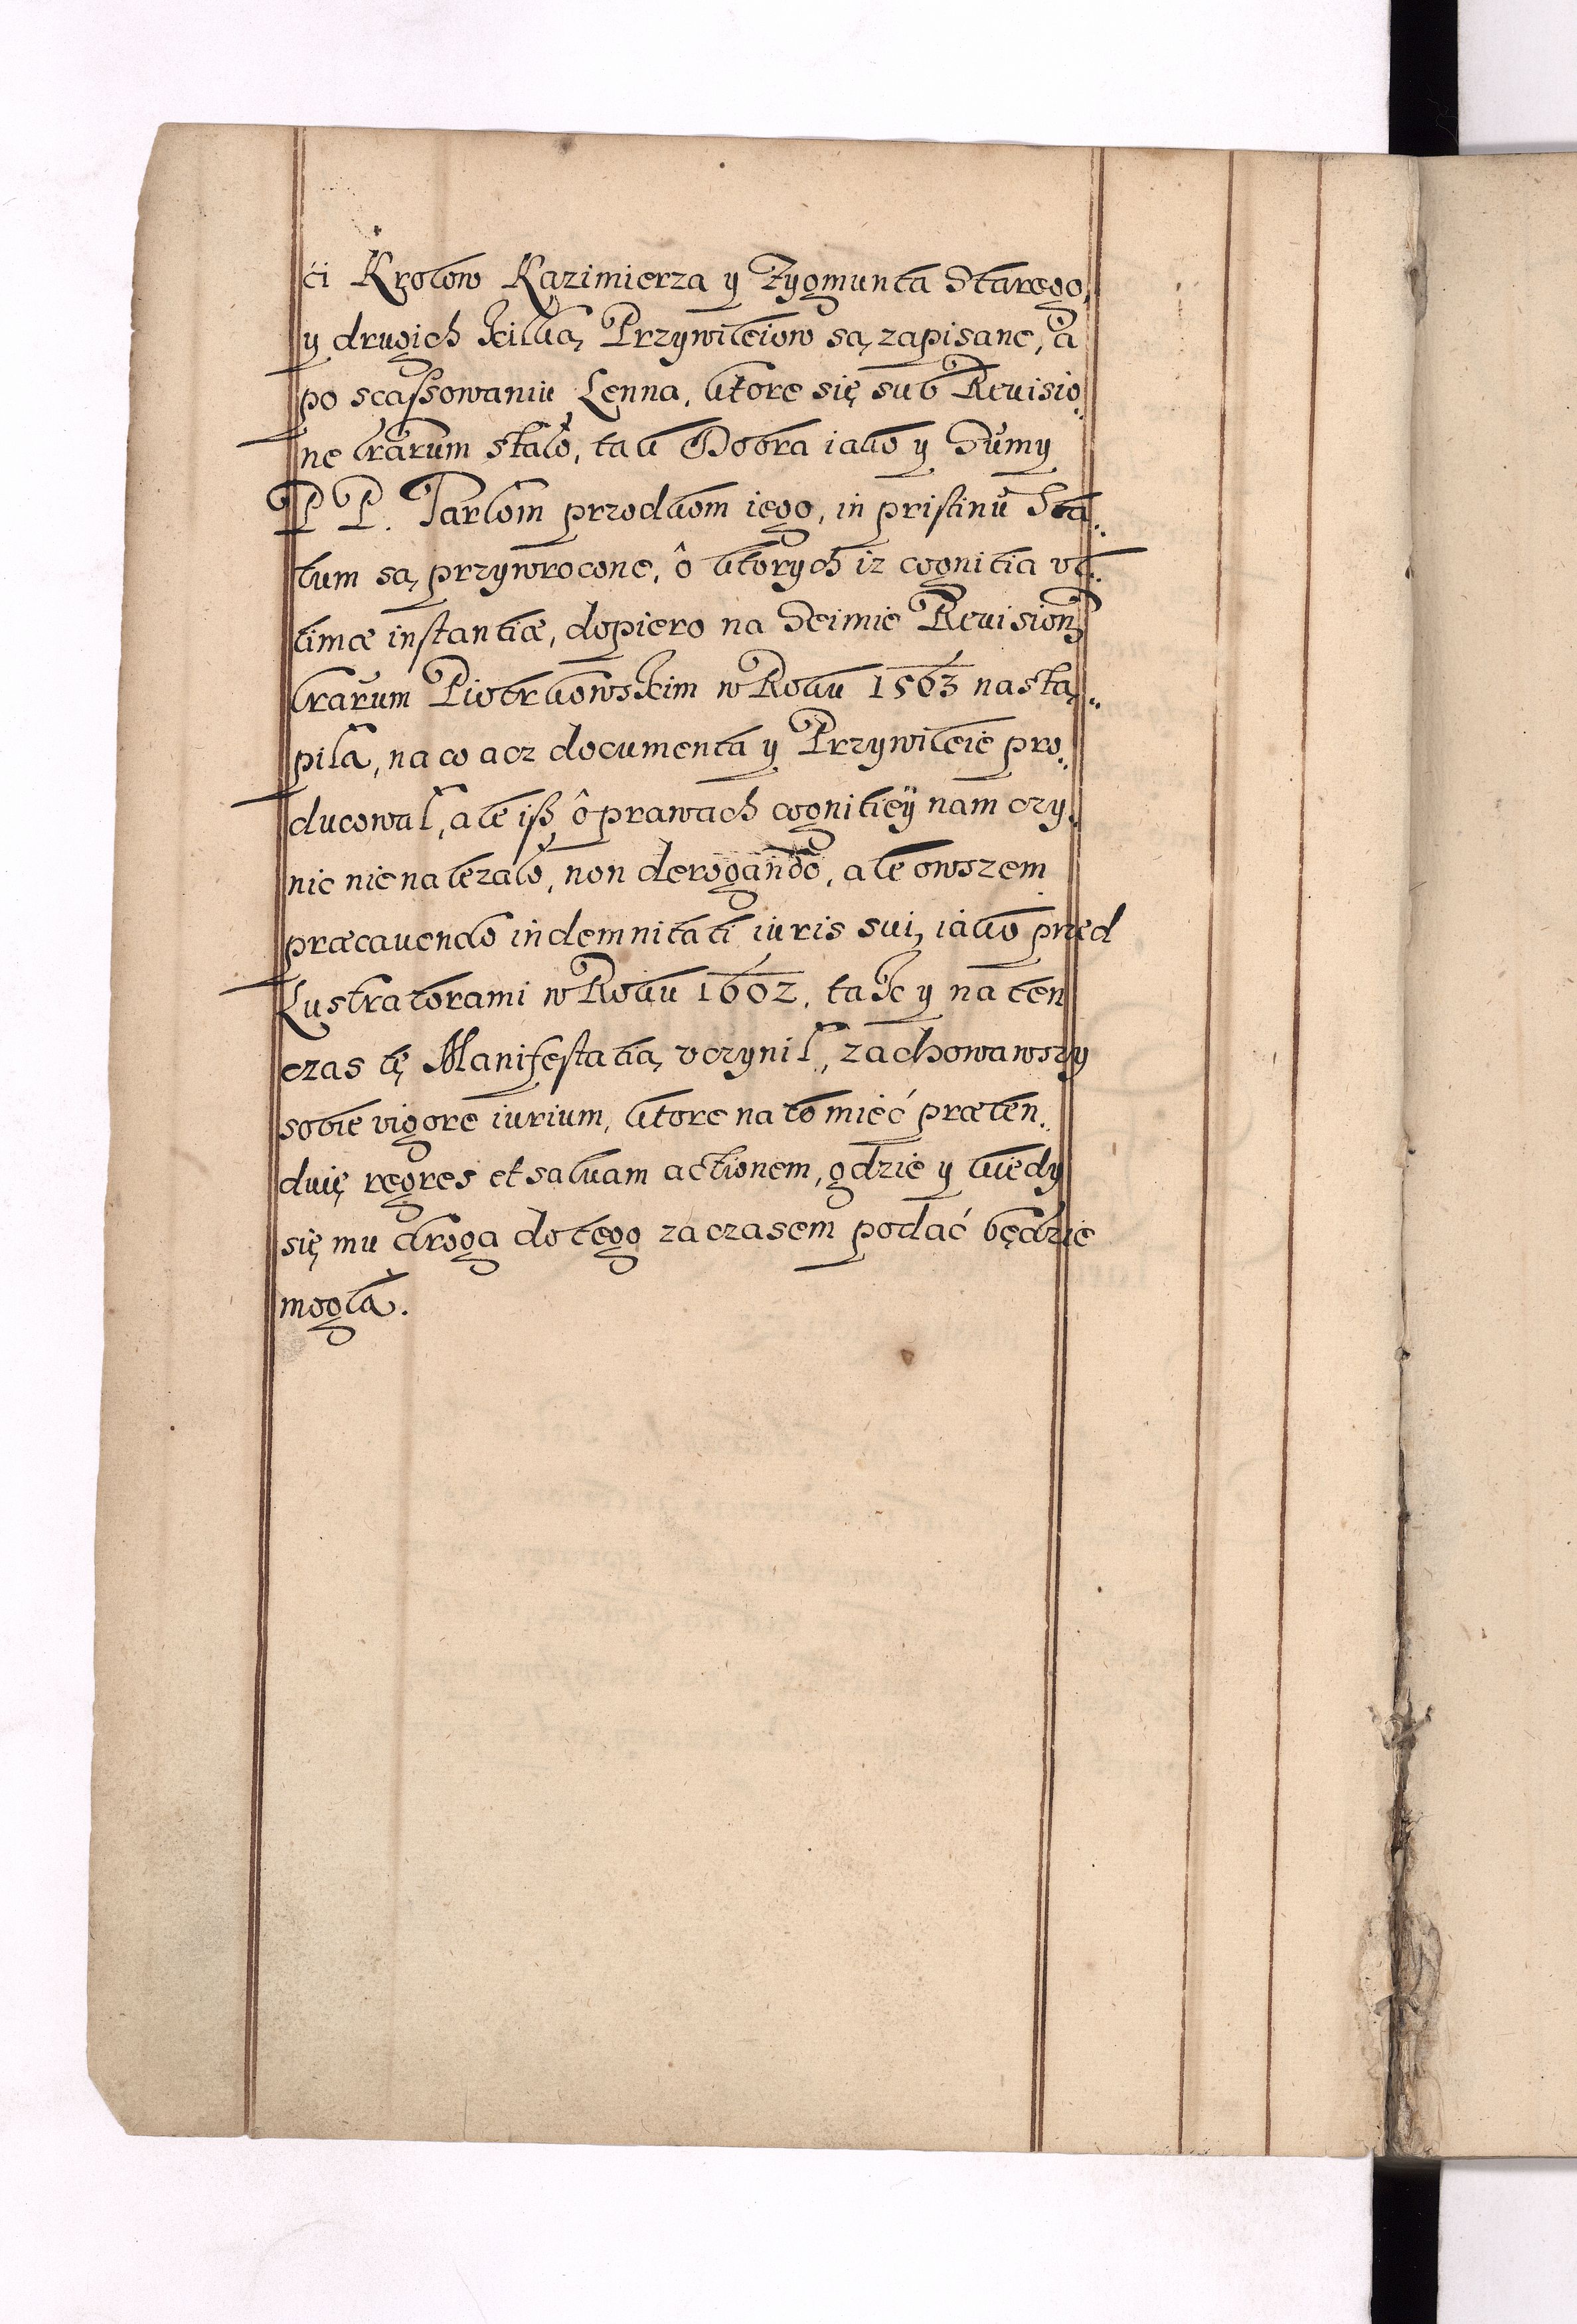 ći Krolow Kazimierza y Zygmunta Starego,
y drugich kilką Przywileiow są zapisane, a
po scaſsowaniu Lenna, ktore się sub Reuisio-
ne lrarum stało, tak Dobra iako y Summy
P P. Tarłom przodkom iego, in pristinū Sta-
tum są przywrocone, ô ktorych iz cognitia vl-
timæ instantiæ, dopiero na Seimie Reuision
lrarum Piotrkowskim w Roku 1563 nastą-
piła, na co acz documenta y Przywileie pro-
ducował, ale iß ô prawach cognitiey nam czy-
nic nie nalezało, non derogando, ale owszem
præcauendo indemnitati iuris sui, iako przed
Lustratorami w Roku 1602, tak y na ten
czas tę Manifestatią vczynił, zachowawszy
sobie vigore iurium, ktore na to mieć præten-
duię regres et saluam actionem, gdzie y kiedy
się mu droga do tego za czasem podać będzie
mogła.